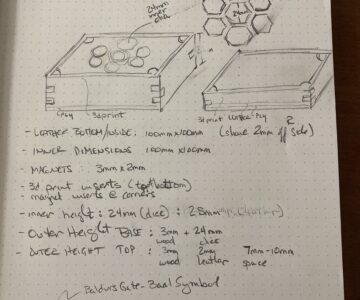 24mm
inner
24mm
Ply 3d print
3d print leather Ply
- Leather Bottom/Inside: 100mm x 100mm (shave 2mm off side)
- INNER DIMENSIONS 100mm x 100mm
- MAGNETS: 3mm x 2mm
- 3d print inserts (top/bottom)
- magnet inserts @ corners
- inner height: 24mm (dice) : 28mm
- Outer Height BASE: 3mm + 24mm
wood dice
- OUTER HEIGHT TOP: 3mm 2mm 7mm-10mm
wood leather space
Baldurs Gate - Baal Symbol